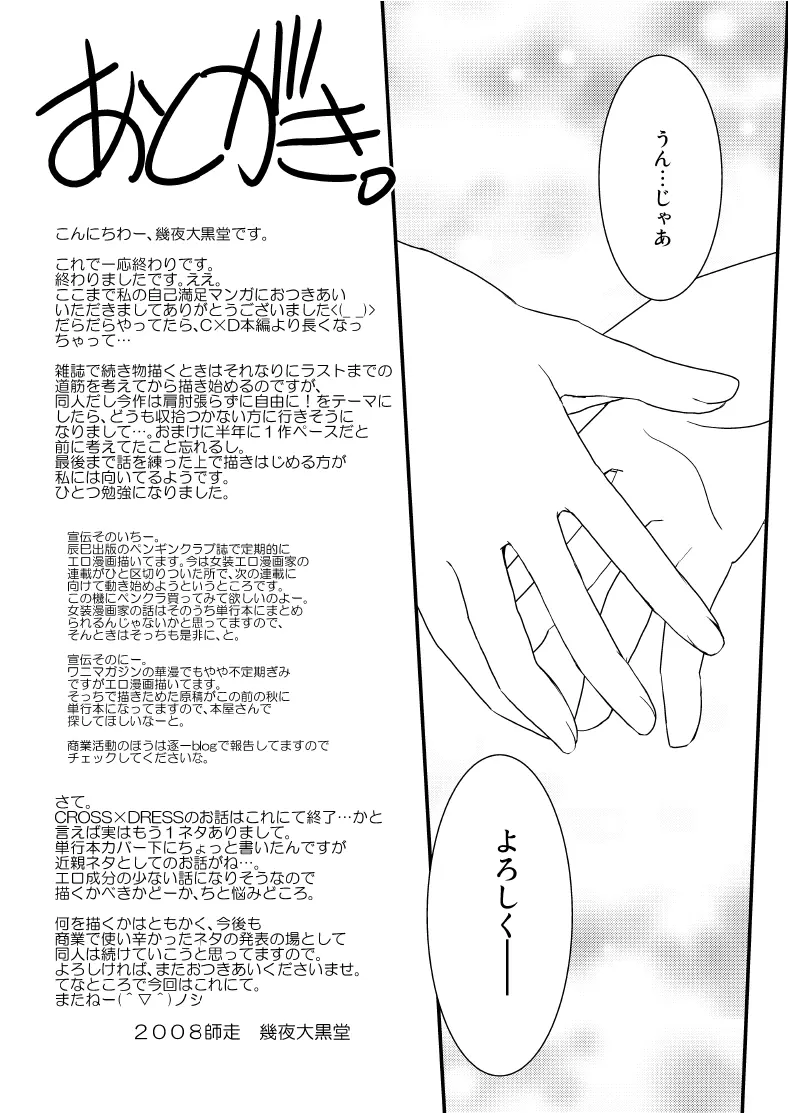 うん…じゃあ
よろしく――
あとがき。
こんにちわー、幾夜大黒堂です。
これで一応終わりです。
終わりましたです。ええ。
ここまで私の自己満足マンガにおつきあい
いただきましてありがとうございました<(_ _)>
だらだらやってたら、C×D本編より長くなっ
ちゃって…
雑誌で続き物描くときはそれなりにラストまでの
道筋を考えてから描き始めるのですが、
同人だし今作は肩肘張らずに自由に！をテーマに
したら、どうも収拾つかない方に行きそうに
なりまして…。おまけに半年に１作ペースだと
前に考えてたこと忘れるし。
最後まで話を練った上で描きはじめる方が
私には向いてるようです。
ひとつ勉強になりました。
宣伝そのいちー。
辰巳出版のペンギンクラブ誌で定期的に
エロ漫画描いてます。今は女装エロ漫画家の
連載がひと区切りついた所で、次の連載に
向けて動き始めようというところです。
この機にペンクラ買ってみて欲しいのよー。
女装漫画家の話はそのうち単行本にまとめ
られるんじゃないかと思ってますので、
そんときはそっちも是非に、と。
宣伝そのにー。
ワニマガジンの華漫でもやや不定期ぎみ
ですがエロ漫画描いてます。
そっちで描きためた原稿がこの前の秋に
単行本になってますので、本屋さんで
探してほしいなーと。
商業活動のほうは逐一blogで報告してますので
チェックしてくださいな。
さて。
CROSS×DRESSのお話はこれにて終了…かと
言えば実はもう１ネタありまして。
単行本カバー下にちょっと書いたんですが
近親ネタとしてのお話がね…。
エロ成分の少ない話になりそうなので
描くかべきかどーか、ちと悩みどころ。
何を描くかはともかく、今後も
商業で使い辛かったネタの発表の場として
同人は続けていこうと思ってますので。
よろしければ、またおつきあいくださいませ。
てなところで今回はこれにて。
またねー(＾▽＾)ノシ
２００８師走　幾夜大黒堂